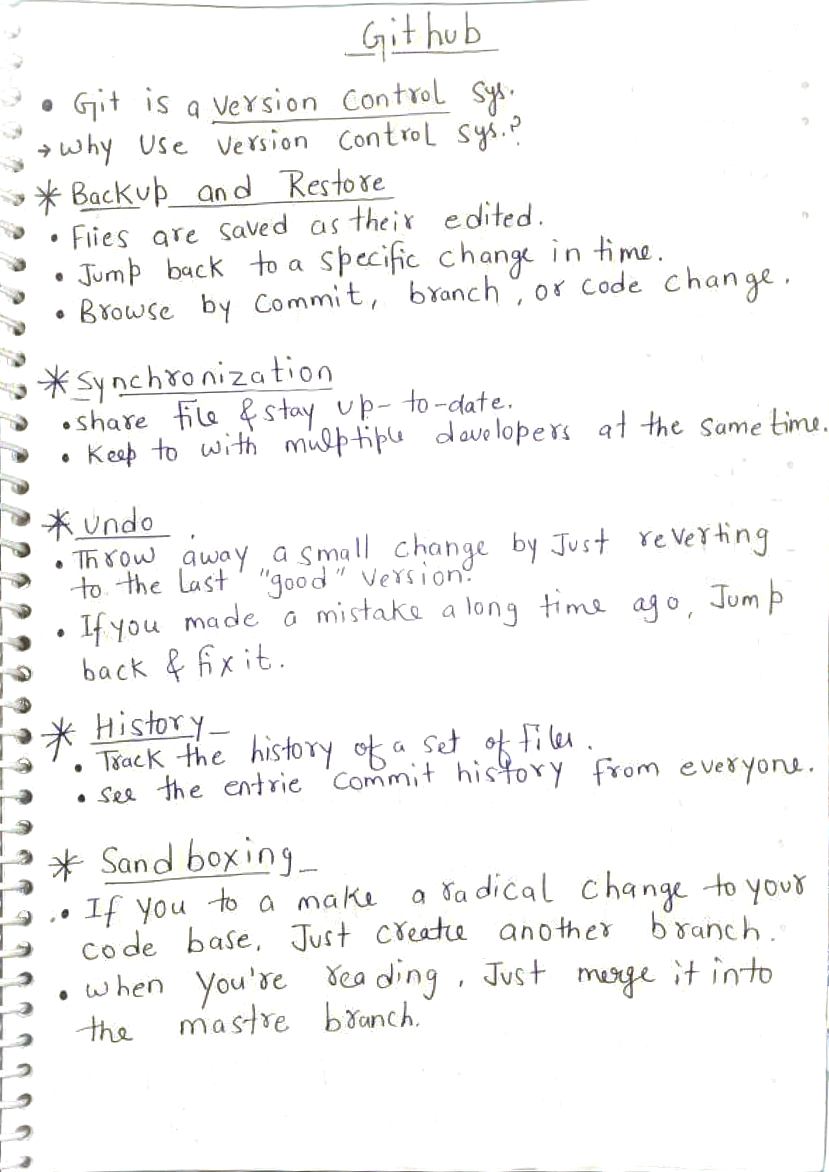 Github
• Git is a version control sys.
→ Why Use version control sys.?
* Backup and Restore
• Flies are saved as their edited.
• Jump back to a specific change in time.
• Browse by commit, branch, or code change.
* Synchronization
• share file & stay up-to-date.
• Keep to with multptiple developers at the same time.
* Undo
• Throw away a small change by Just reverting
to the last "good" version.
• If you made a mistake a long time ago, Jump
back & fix it.
* History
• Track the history of a set of files.
• see the entrie commit history from everyone.
* Sand boxing
• If you to a make a radical change to your
code base, Just creatre another branch.
• when you're reading, Just merge it into
the mastre branch.